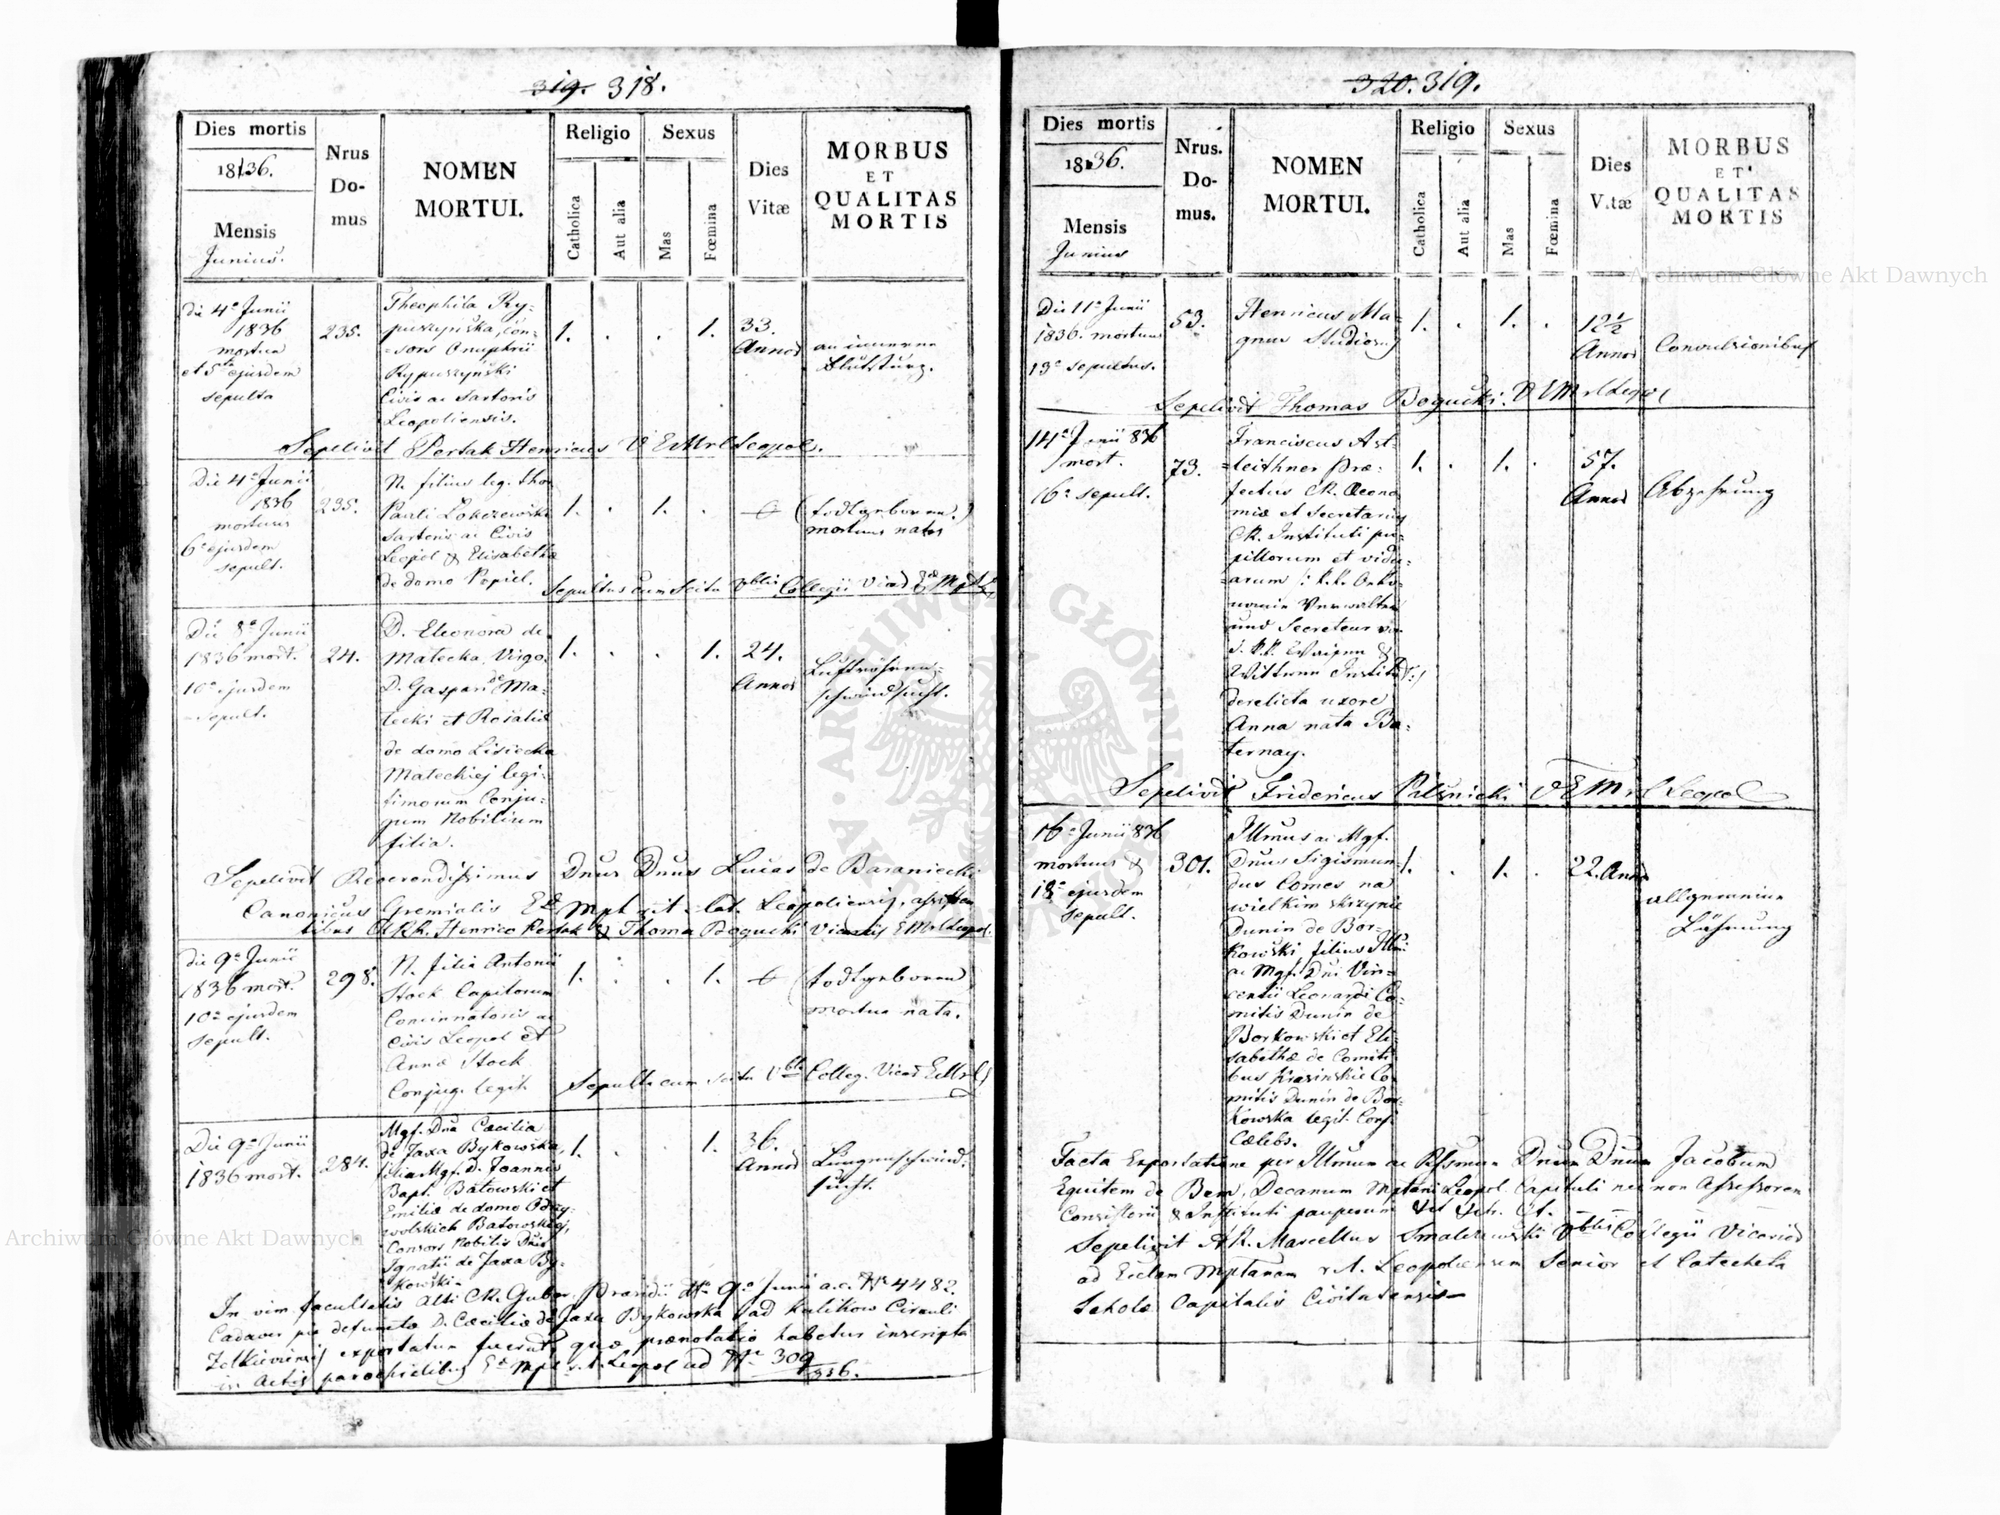 319. 318.
Dies mortis
1836.
Mensis
Junius.
Nrus
Do-
mus
NOMEN
MORTUI.
Religio
Catholica
Aut alia
Sexus
Mas
Fœmina
Dies
Vitæ
MORBUS
ET
QUALITAS
MORTIS
Die 4ª Junii
1836
mortua
et 5ta ejusdem
sepulta
235.
Theophila Ry-
puszyńska, con-
sors Onuphrii
Rypuszyński
Civis ac Sartoris
Leopoliensis.
1. . . 1.
33.
Annos
an innerem
Blutsturz.
Sepelivit Pertak Henricus V E Mrl Leopol.
Die 4ª Junii
1836
mortuus
6ª ejusdem
sepult.
235.
N. filius leg. thor
Pauli
Sartoris ac Civis
Leopol & Elisabethæ
de domo Popiel.
1. . 1. .
(todtgeboren.)
mortuus natus
Sepultus cum scitu Vblis Collegii Vicar
Die 8ª Junii
1836 mort.
10ª ejusdem
sepult.
24.
D. Eleonora de
Matecka, Virgo.
D. Gaspari de Ma-
tecki et Rosaliæ
de domo Lisiecka
Mateckiej legi-
timorum Conju-
gum Nobilium
filia.
1. . . 1.
24.
Annos
Luftröhren-
schwindsucht.
Sepelivit Reverendissimus Dnus Dnus Lucas de Baraniecki
Canonicus Gremialis Ec Mpt rit. lat. Leopoliensis, assisten
tibus ARR. Henrico Pertak & Thoma Bogucki Vicariis E Mrl Leopol.
die 9ª Junii
1836 mort.
10ª ejusdem
sepult.
298.
N. filia Antonii
Stock Capitorum
Concinnatoris ac
Civis Leopol et
Annæ Stock
Conjug. legit.
1. . . 1.
(todtgeboren)
mortua nata.
Sepulta cum scitu Vblis Colleg. Vicar E Mrl
Die 9ª Junii
1836 mort.
284.
Mgf. Dna Cæcilia
de Jaxa Bykowska,
filia Mgf. D. Joannis
Bapt. Batowski et
Emiliæ de domo
Batowskiej,
Consors Nobilis Dni
Ignatii de Jaxa By-
kowski.
1. . . 1.
36.
Annos
Lungenschwind-
sucht.
In vim facultatis Alti CR. Guber. Præsidii dto 9ª Junii a.c. Nr 4482.
Cadaver pie defunctæ D. Cæciliæ de Jaxa Bykowska ad Kulikow Circuli
Zolkieviensis exportatum fuerat, quæ prænotatio habetur inscripta
in Actis parochialibus Ec Mpl r.l. Leopol ad Nr 309
836.
320. 319.
Dies mortis
1836.
Mensis
Junius
Nrus.
Do-
mus.
NOMEN
MORTUI.
Religio
Catholica
Aut alia
Sexus
Mas
Fœmina
Dies
Vitæ
MORBUS
ET
QUALITAS
MORTIS
Die 11ª Junii
1836. mortuus
13ª sepultus.
53.
Henricus Ma-
gnus Studiosus
1. . 1. .
12½
Annos
Convulsionibus
Sepelivit Thomas Bogucki. V E Mrl Leopol
14ª Junii 836
mort.
16ª sepult.
73.
Franciscus Ast-
leithner Præ-
fectus CR. Oecono
miæ et Secretarius
CR. Instituti pu-
pillorum et vidu-
arum /: k.k. Oeko-
nomie Verwalter
und Secreteur
Waisen &
Wittwen Institut :/
derelicta uxore
Anna nata Ba-
ternay.
1. . 1. .
57.
Annos
Abzehrung
Sepelivit Fridericus Pilznicki V E Mrl Leopol
16ª Junii 836
mortuus &
18ª ejusdem
sepult.
301.
Illmus ac Mgf.
Dnus Sigismun-
dus Comes na
wielkim skrzynie
Dunin de Bor-
kowski, filius Illmi
ac Mgf. Dni Vin-
centii Leonardi Co-
mitis Dunin de
Borkowski et Eli-
sabethæ de Comiti-
bus Krasinskie Co-
mitis Dunin de Bor-
kowska legit. Conj
Cælebs.
1. . 1. .
22. Annos
allgemeine
Lähmung
Facta Exportatione per Illmum ac Rssmum Dnum Dnum Jacobum
Equitem de Bem, Decanum Mptani Leopol. Capituli nec non Assessorem
Consistorii & Instituti pauperum
Sepelivit AR. Marcellus Smalezewski Vblis Collegii Vicarior
ad Eccl̃am Mptanam r.l. Leopoliensem Senior et Catecheta
Scholæ Capitalis Civitatensis
Archiwum Główne Akt Dawnych
Archiwum Główne Akt Dawnych
ARCHIWUM GŁÓWNE AKT DAWNYCH